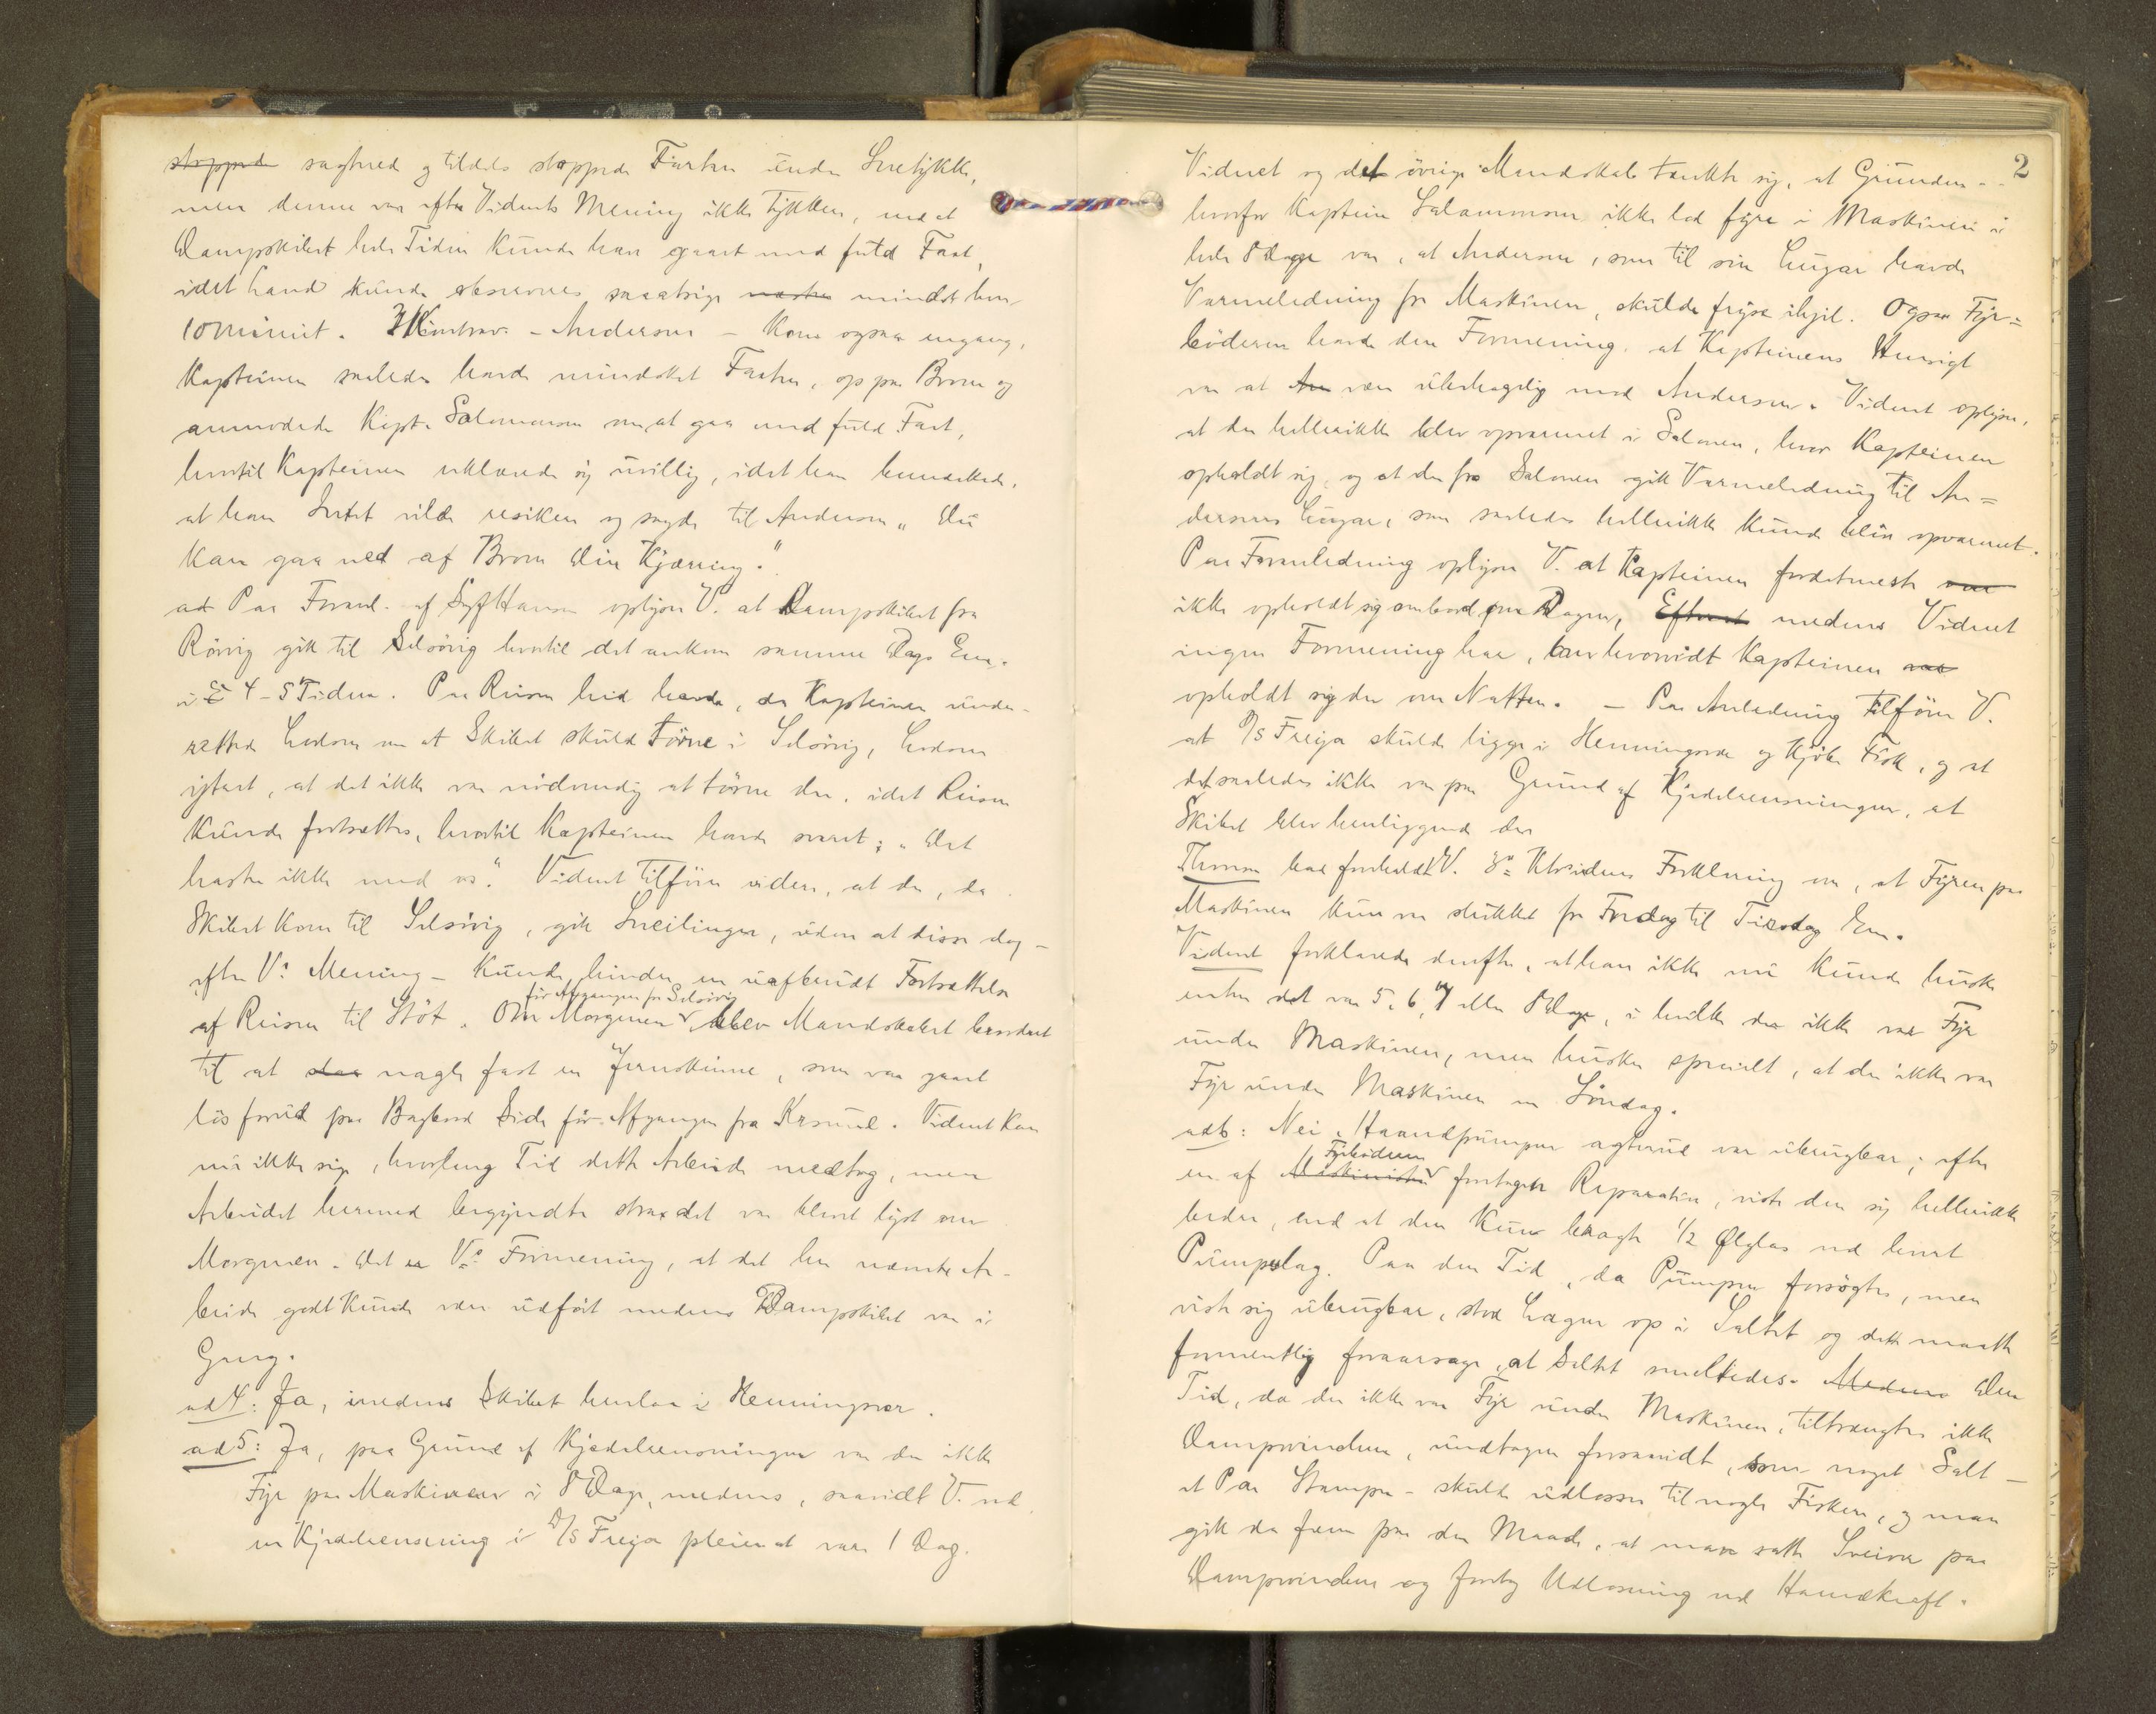 stoppede sagtned og tildels stoppede Farten under Snetykke,
men denne var efter Vidnets Mening ikke tykkere, end at
Dampskibet hele Tiden kunde have gaaet med fuld Fart,
idet Land kunde observeres saaatsige næsten mindst hver
10 minut. Andersen - Kom ogsaa engang,
Kapteinen saaledes havde mindsket Farten, op paa Broen og
anmodede Kapt. Salomonsen om at gaa med fuld Fart,
hvortil Kapteinen erklærede sig uvillig, idet han bemærkede,
at han Intet vilde resikere og sagde til Andersen „Du
kan gaa ned af Broen din Kjærring."
ad Paa Foranl. af Hansen oplyser V. at Dampskibet fra
Rörvig gik til Selsövig hvortil det ankom samme Dags Em.
i E 4-5 Tiden. Paa Reisen hid havde, da Kapteinen under-
rettede Lodsen om at Skibet skulde törne i Selsövig, Lodsen
ytret, at det ikke var nödvendig at törne der, idet Reisen
kunde fortsættes, hvortil Kapteinen havde svaret; „Det
haster ikke med os". Vidnet tilföier videre, at der, da
Skibet kom til Selsövig, gik Sneilinger, uden at disse dog -
efter V.s Mening - kunde hindre en uafbrudt Fortsættelse
för Afgangen fra Selsövig
af Reisen til Stöt. Om Morgenen blev Mandskabet beordret
til at slaa nagle fast en Jernskinne, som var gaaet
lös forud paa Bagbord Side för Afgangen fra Krsund. Vidnet kan
nu ikke sige, hvorlang Tid dette Arbeide medtog, men
Arbeidet hermed begyndte strax det var blevet lyst om
Morgenen. Det er V.s Formening, at det her nævnte Ar-
beide godt kunde være udfört medens Dampskibet var i
Gang.
ad 4: Ja, medens Skibet henlaa i Henningsvær.
ad 5: Ja, paa Grund af Kjedelrensningen var der ikke
Fyr paa Maskinen i 8 Dage, medens, saavidt V. ved
en Kjedelrensning i D/S Freya pleier at vare 1 Dag.
2
Vidnet og det övrige Mandskab tænkte sig, at Grunden
hvorfor Kaptein Salamonsen ikke lod fyre i Maskinen i
hele 8 Dage var, at Andersen, som til sin Lugar havde
Varmeledning fra Maskinen, skulde fryse ihjel. Ogsaa Fyr=
böderen havde den Formening, at Kapteinens Hensigt
var at An være ubehagelig mod Andersen. Vidnet oplyser,
at der hellerikke blev opvarmet i Salonen, hvor Kapteinen
opholdt sig, og at der fra Salonen gik Varmeledning til An=
dersens Lugar, som saaledes hellerikke kunde bliv opvarmet.
Paa Foranledning oplyser V. at Kapteinen fordetmeste var
ikke opholdt sig ombord om Dagen, Efterat medens Vidnet
ingen Formening har, om hvorvidt Kapteinen var
opholdt sig der om Natten. - Paa Anledning tilföier V.
at D/S Freya skulde ligge i Henningsvær og kjöbe Fisk, og at
det saaledes ikke var paa Grund af Kjedelrensningen, at
Skibet blev henliggende der
Thomsen har foreholdt V. 3die Vidnes Forklaring om, at Fyren paa
Maskinen kun var slukket fra Fredag til Tirsdag Em.
Vidnet forklarede derefter, at han ikke nu kunde huske
enten det var 5, 6, 7 eller 8 Dage, i hvilke der ikke var Fyr
under Maskinen, men husker specielt, at der ikke var
Fyr under Maskinen en Söndag.
ad 6: Nei. Haandpumpen agterud var ubrugbar; efter
Fyrböderen
en af Maskinisten foretagen Reparation, viste den sig hellerikke
bedre, end at den kun bragte 1/2 Ølglas ved hvert
Pumpeslag. Paa den Tid, da Pumpen forsögtes, men
viste sig ubrugbar, stod Lagen op i Saltet og dette maatte
formentlig foraarsage, at Saltet smeltedes. Medens Den
Tid, da der ikke var Fyr under Maskinen, tiltrængtes ikke
Dampvindsen, undtagen forsaavidt, som noget Salt -
et Par Stamper - skulde udlosses til nogle Fiskere, og man
gik da frem paa den Maade, at man satte Sveiver paa
Dampvindsen og foretog Udlosning ved Haandkraft.